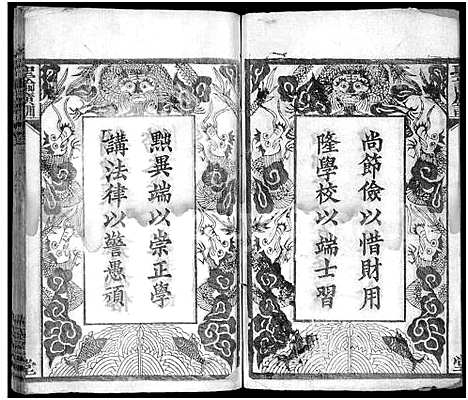 尚節儉以惜財用
隆學校以端士習
黜異端以崇正學
講法律以警愚頑